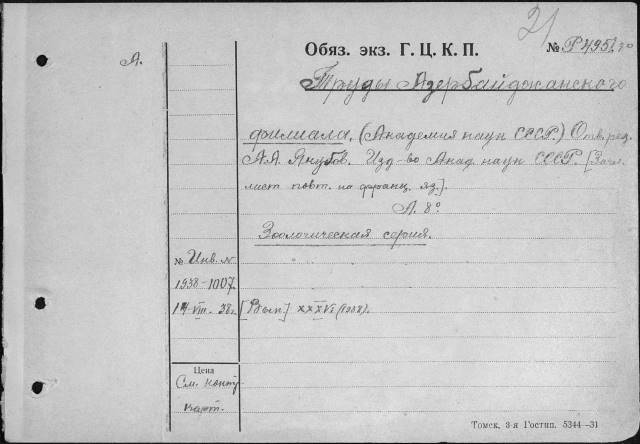 21
Обяз. экз. Г. Ц. К. П. № Р 4951
А.
Труды Азербайджанского
филиала. (Академия наук СССР.) Отв. ред.
А.А. Якубов. Изд-во Акад. наук СССР. [Загл.
лист повт. по франц. яз.].
Л. 8°
Зоологическая серия.
№ Инв. №
1938-1007.
14-VIII-38г. [Вып.] XXXVI (1938).
Цена
См. конт.
карт.
Томск. 3-я Гостип. 5344—31